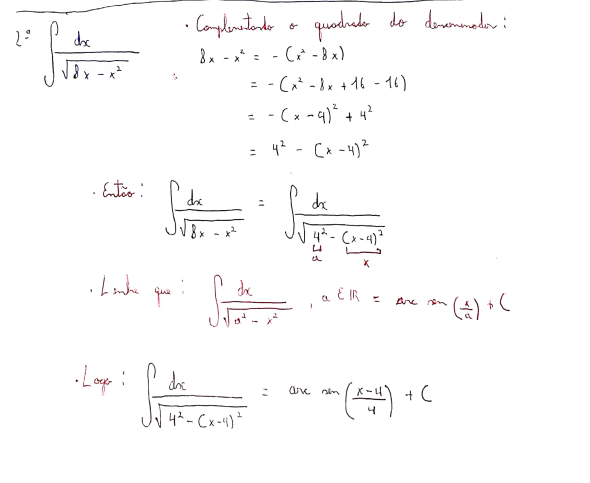 2º ∫ dx / √(8x - x²)
· Completando o quadrado do denominador:
8x - x² = -(x² - 8x)
= -(x² - 8x + 16 - 16)
= -(x - 4)² + 4²
= 4² - (x - 4)²
· Então: ∫ dx / √(8x - x²) = ∫ dx / √(4² - (x - 4)²)
a x
· Lembre que: ∫ dx / √(a² - x²), a ∈ ℝ = arc sen (x/a) + C
· Logo: ∫ dx / √(4² - (x - 4)²) = arc sen ((x - 4)/4) + C